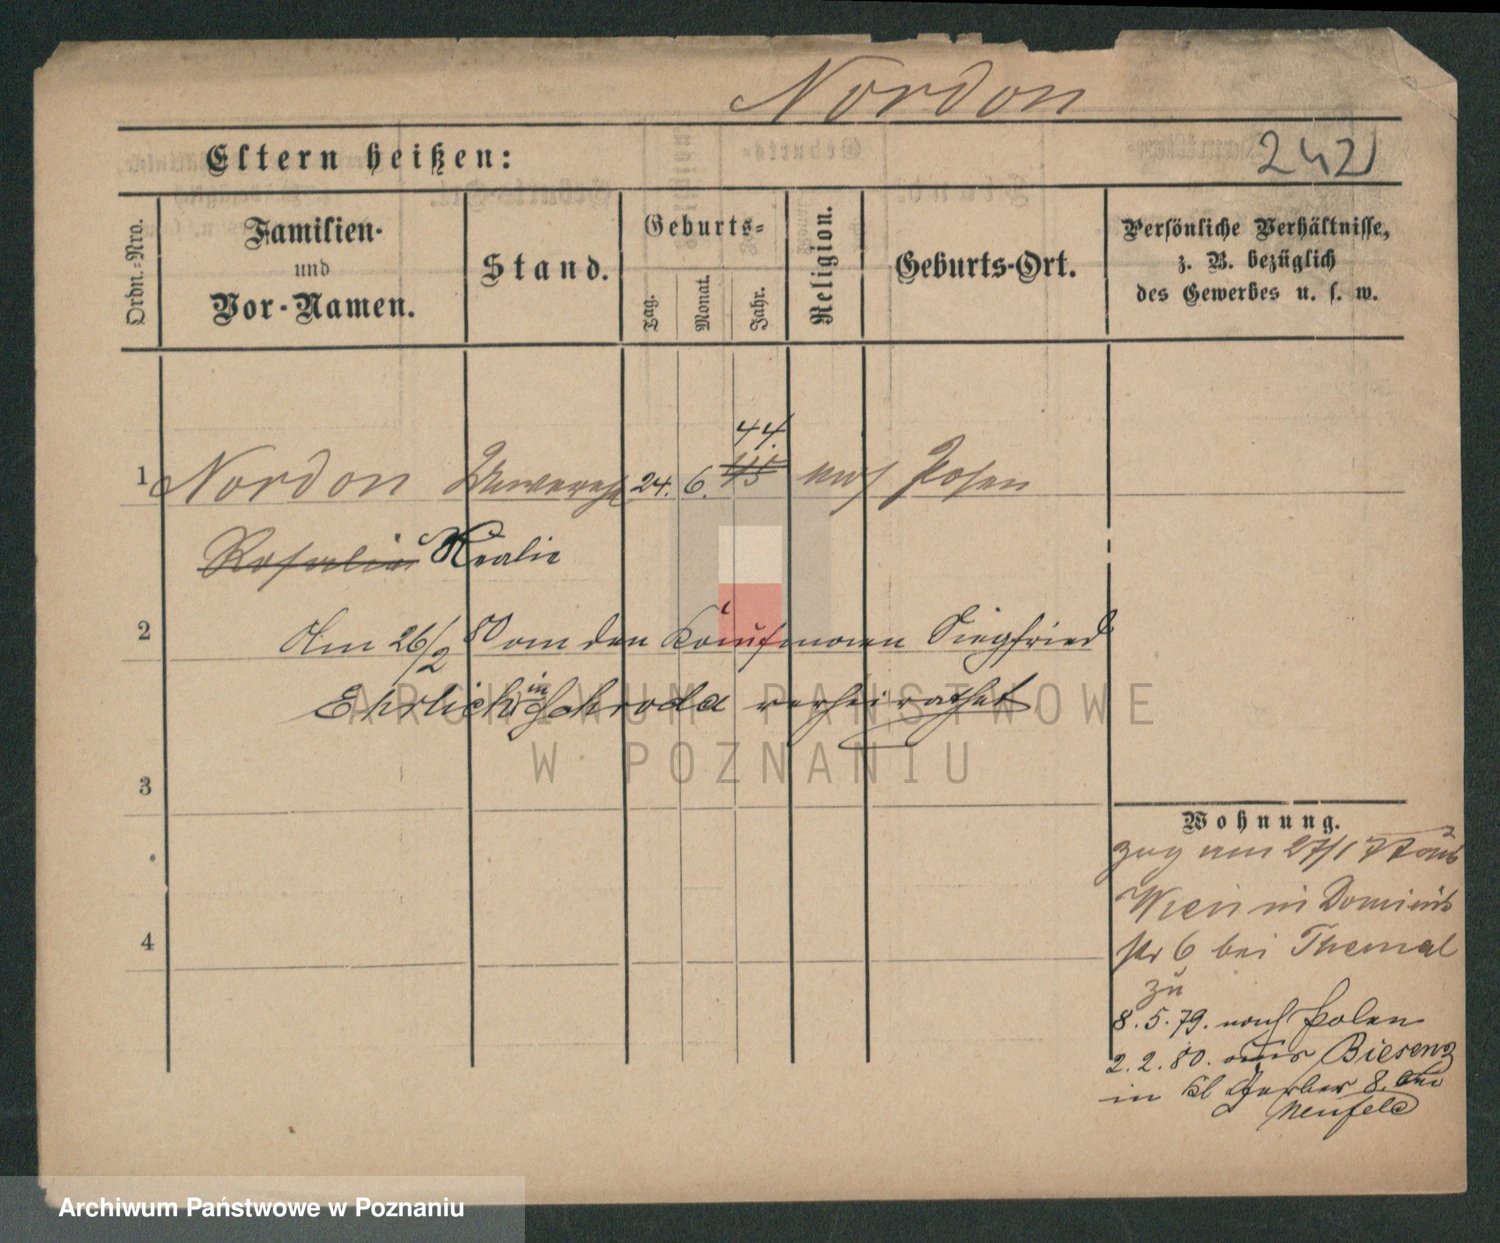 Nordon
Eltern heißen:
242
Ordn.-Nro.
Familien- und Vor-Namen.
Stand.
Geburts-
Tag.
Monat.
Jahr.
Religion.
Geburts-Ort.
Persönliche Verhältnisse,
z. B. bezüglich
des Gewerbes u. s. w.
44.
1 Nordon 24. 6. 45 mos Posen
Rosalie
2 Am 26/2 80 an den Kaufmann Siegfried
Ehrlich in Schroda verheirathet
ARCHIWUM PAŃSTWOWE
W POZNANIU
3
4
Wohnung.
zog am 27/1 77 aus
Wien in Dominik
str 6 bei Themal
zu
8. 5. 79. nach Polen
2. 2. 80. aus
in kl Gerber 8. bei
Neufeld
Archiwum Państwowe w Poznaniu